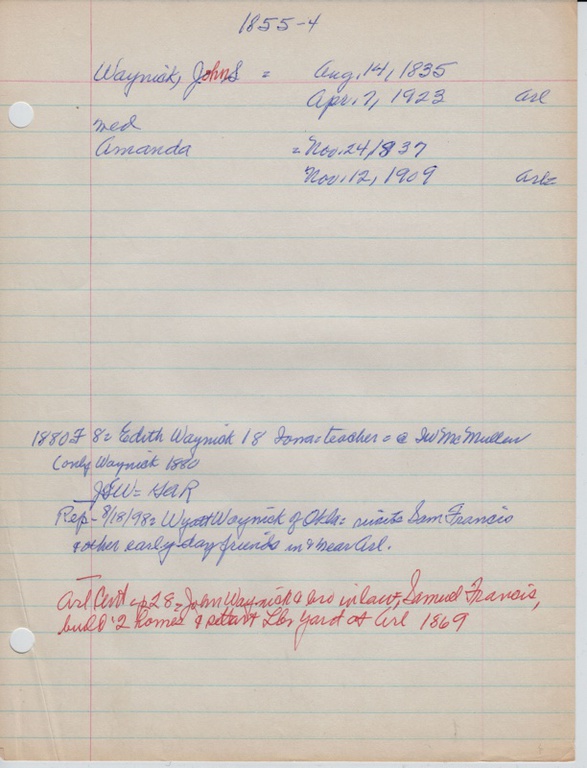 1855-4
Waynick, John S = Aug. 14, 1835
Apr. 7, 1923 Arl
med
Amanda = Nov. 24, 1837
Nov. 12, 1909 Arl=
1880 F 8= Edith Waynick 18 Iowa=teacher=@ McMullen
(only Waynick 1880
JSW= GAR
Rep- 8/18/98= Wyatt Waynick of Okla= visits Sam Francis
& other early-day friends in & near Arl.
Arl Cent p 28= John Waynick & bro in law, Samuel Francis,
build 2 homes & start Lbr Yard at Arl 1869